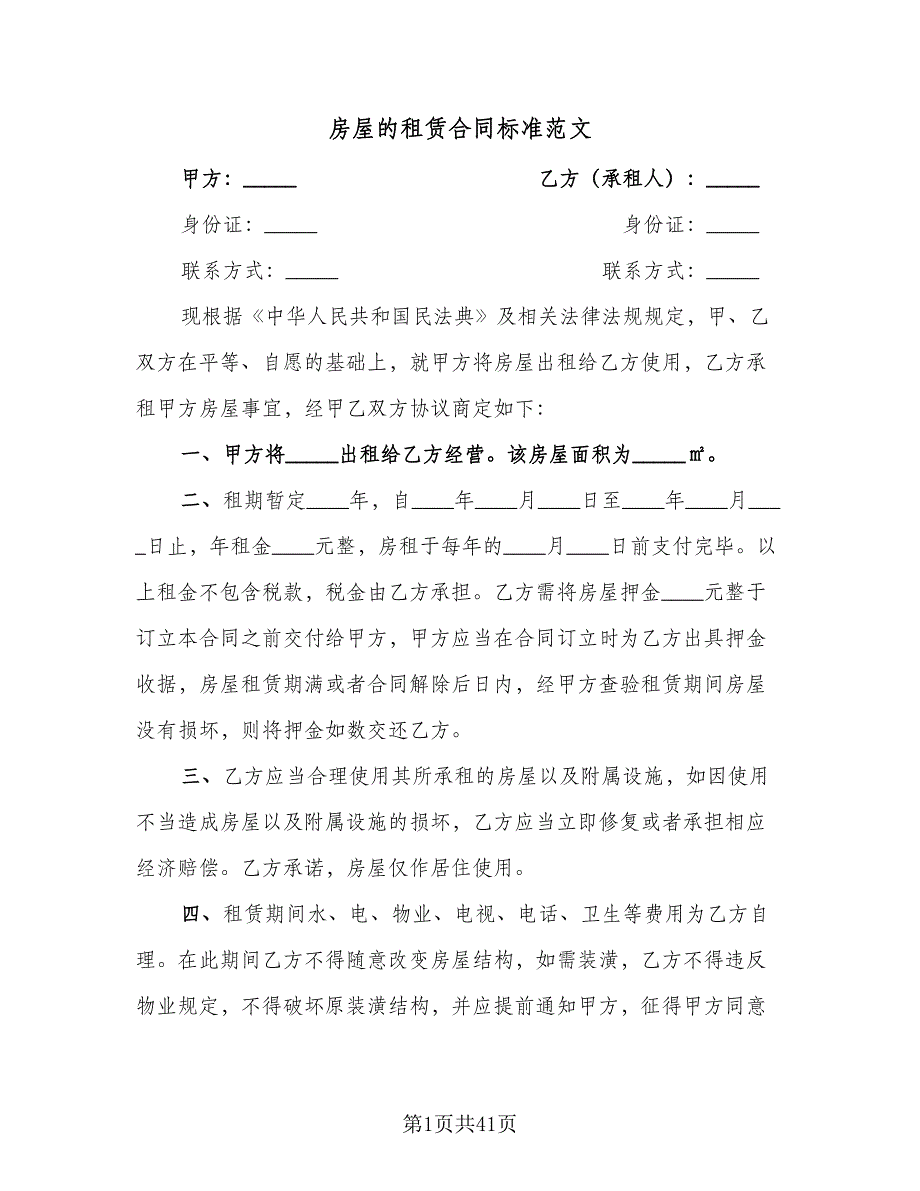 房屋的租赁合同标准范文
甲方：_____ 乙方（承租人）：_____
身份证：_____ 身份证：_____
联系方式：_____ 联系方式：_____
现根据《中华人民共和国民法典》及相关法律法规规定，甲、乙
双方在平等、自愿的基础上，就甲方将房屋出租给乙方使用，乙方承
租甲方房屋事宜，经甲乙双方协议商定如下：
一、甲方将_____出租给乙方经营。该房屋面积为_____㎡。
二、租期暂定____年，自____年____月____日至____年____月___
_日止，年租金____元整，房租于每年的____月____日前支付完毕。以
上租金不包含税款，税金由乙方承担。乙方需将房屋押金____元整于
订立本合同之前交付给甲方，甲方应当在合同订立时为乙方出具押金
收据，房屋租赁期满或者合同解除后日内，经甲方查验租赁期间房屋
没有损坏，则将押金如数交还乙方。
三、乙方应当合理使用其所承租的房屋以及附属设施，如因使用
不当造成房屋以及附属设施的损坏，乙方应当立即修复或者承担相应
经济赔偿。乙方承诺，房屋仅作居住使用。
四、租赁期间水、电、物业、电视、电话、卫生等费用为乙方自
理。在此期间乙方不得随意改变房屋结构，如需装潢，乙方不得违反
物业规定，不得破坏原装潢结构，并应提前通知甲方，征得甲方同意
第1页共41页